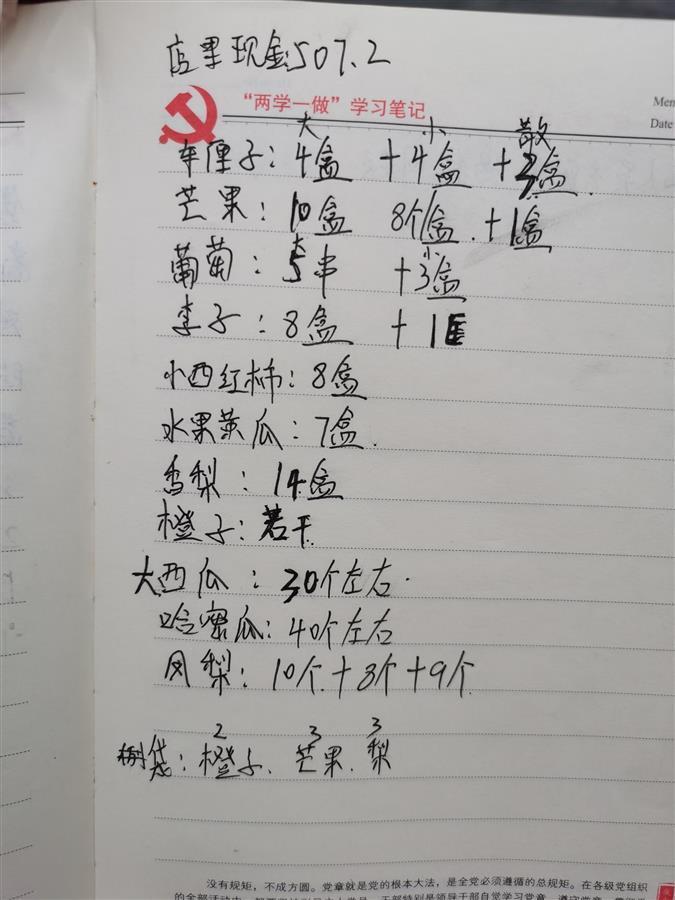 店里现金507.2
Men
"两学一做"学习笔记
Date
大 小 散
车厘子：4盒 +4盒 +3盒.
芒果：10盒 8个1盒.+1盒
大 小
葡萄：5串 +3盒
李子：8盒 +1
小西红柿：8盒
水果黄瓜：7盒.
香梨：14盒
橙子：若干
大西瓜：30个左右.
哈密瓜：40个左右
凤梨：10个+8个+9个
2 3 3
袋：橙子、芒果.梨
没有规矩，不成方圆。党章就是党的根本大法，是全党必须遵循的总规矩。在各级党组织